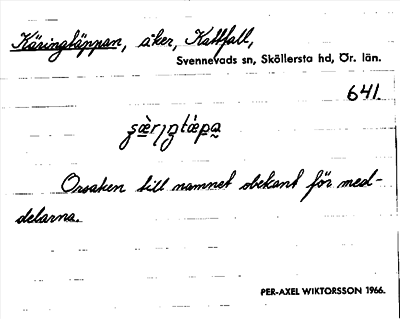 Käringtäppan, åker, Kattfall,
Svennevads sn, Sköllersta hd, Ör. län.
641.
Orsaken till namnet obekant för med-
delarna.
PER-AXEL WIKTORSSON 1966.